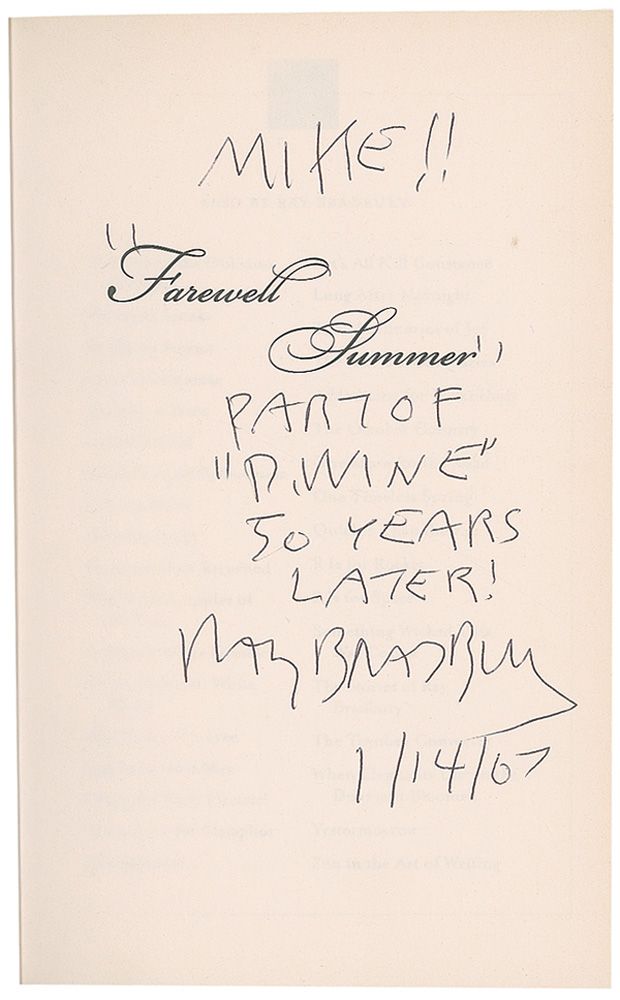 MIKE!!
"Farewell
Summer"
PART OF
"D. WINE"
50 YEARS
LATER!
RAY BRADBURY
1/14/07